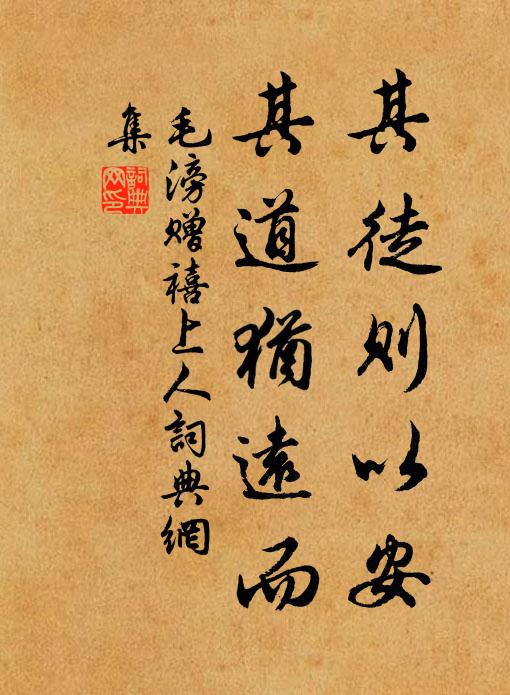 其徒则以安
其道猶遠而
毛滂赠禧上人詞典網
集
詞典網印